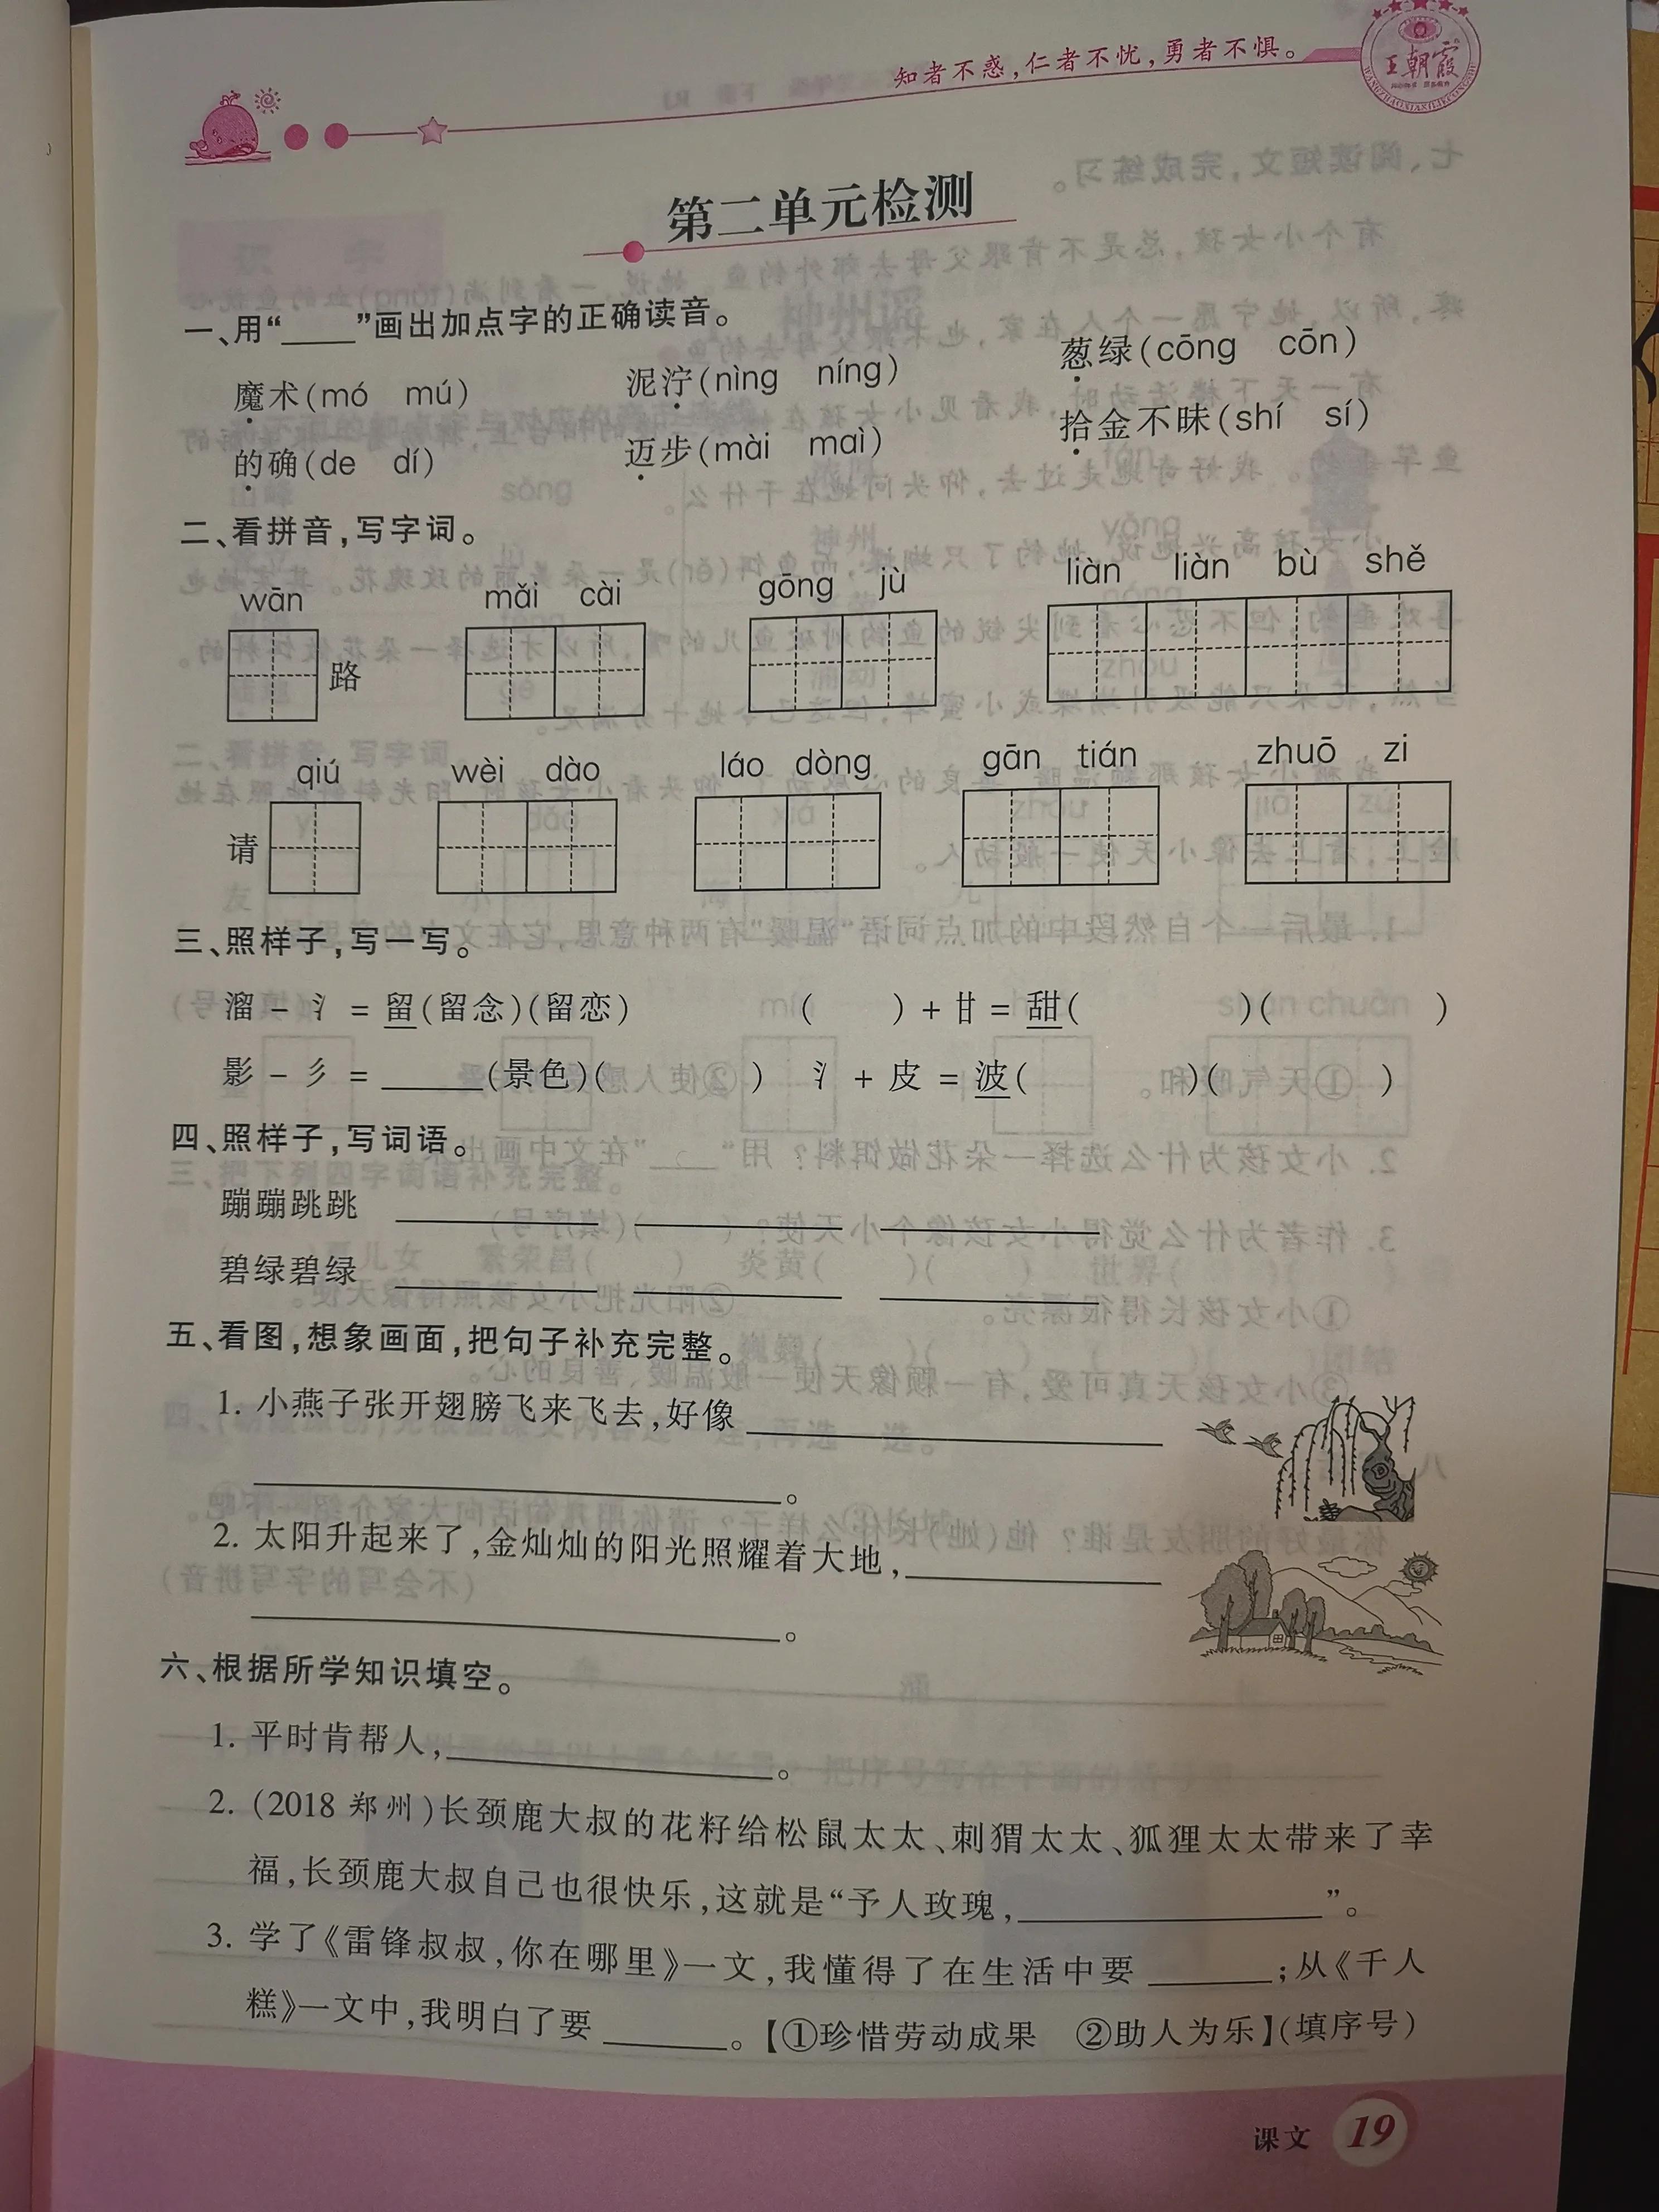 知者不惑,仁者不忧,勇者不惧。
王朝霞
第二单元检测
一、用“____”画出加点字的正确读音。
魔术(mó mú) 泥泞(nìng níng) 葱绿(cōng cōn)
的确(de dí) 迈步(mài maì) 拾金不昧(shí sí)
二、看拼音,写字词。
wān mǎi cài gōng jù liàn liàn bù shě
路
qiú wèi dào láo dòng gān tián zhuō zi
请
三、照样子,写一写。
溜 - 氵 = 留(留念)(留恋) ( ) + 甘 = 甜( )( )
影 - 彡 = ______(景色)( ) 氵 + 皮 = 波( )( )
四、照样子,写词语。
蹦蹦跳跳 ____________ ____________ ____________
碧绿碧绿 ____________ ____________ ____________
五、看图,想象画面,把句子补充完整。
1. 小燕子张开翅膀飞来飞去,好像____________
____________。
2. 太阳升起来了,金灿灿的阳光照耀着大地,____________
____________。
六、根据所学知识填空。
1. 平时肯帮人,____________。
2. (2018 郑州)长颈鹿大叔的花籽给松鼠太太、刺猬太太、狐狸太太带来了幸
福,长颈鹿大叔自己也很快乐,这就是“予人玫瑰,____________”。
3. 学了《雷锋叔叔,你在哪里》一文,我懂得了在生活中要 ______;从《千人
糕》一文中,我明白了要 ______。【①珍惜劳动成果 ②助人为乐】(填序号)
课文 19